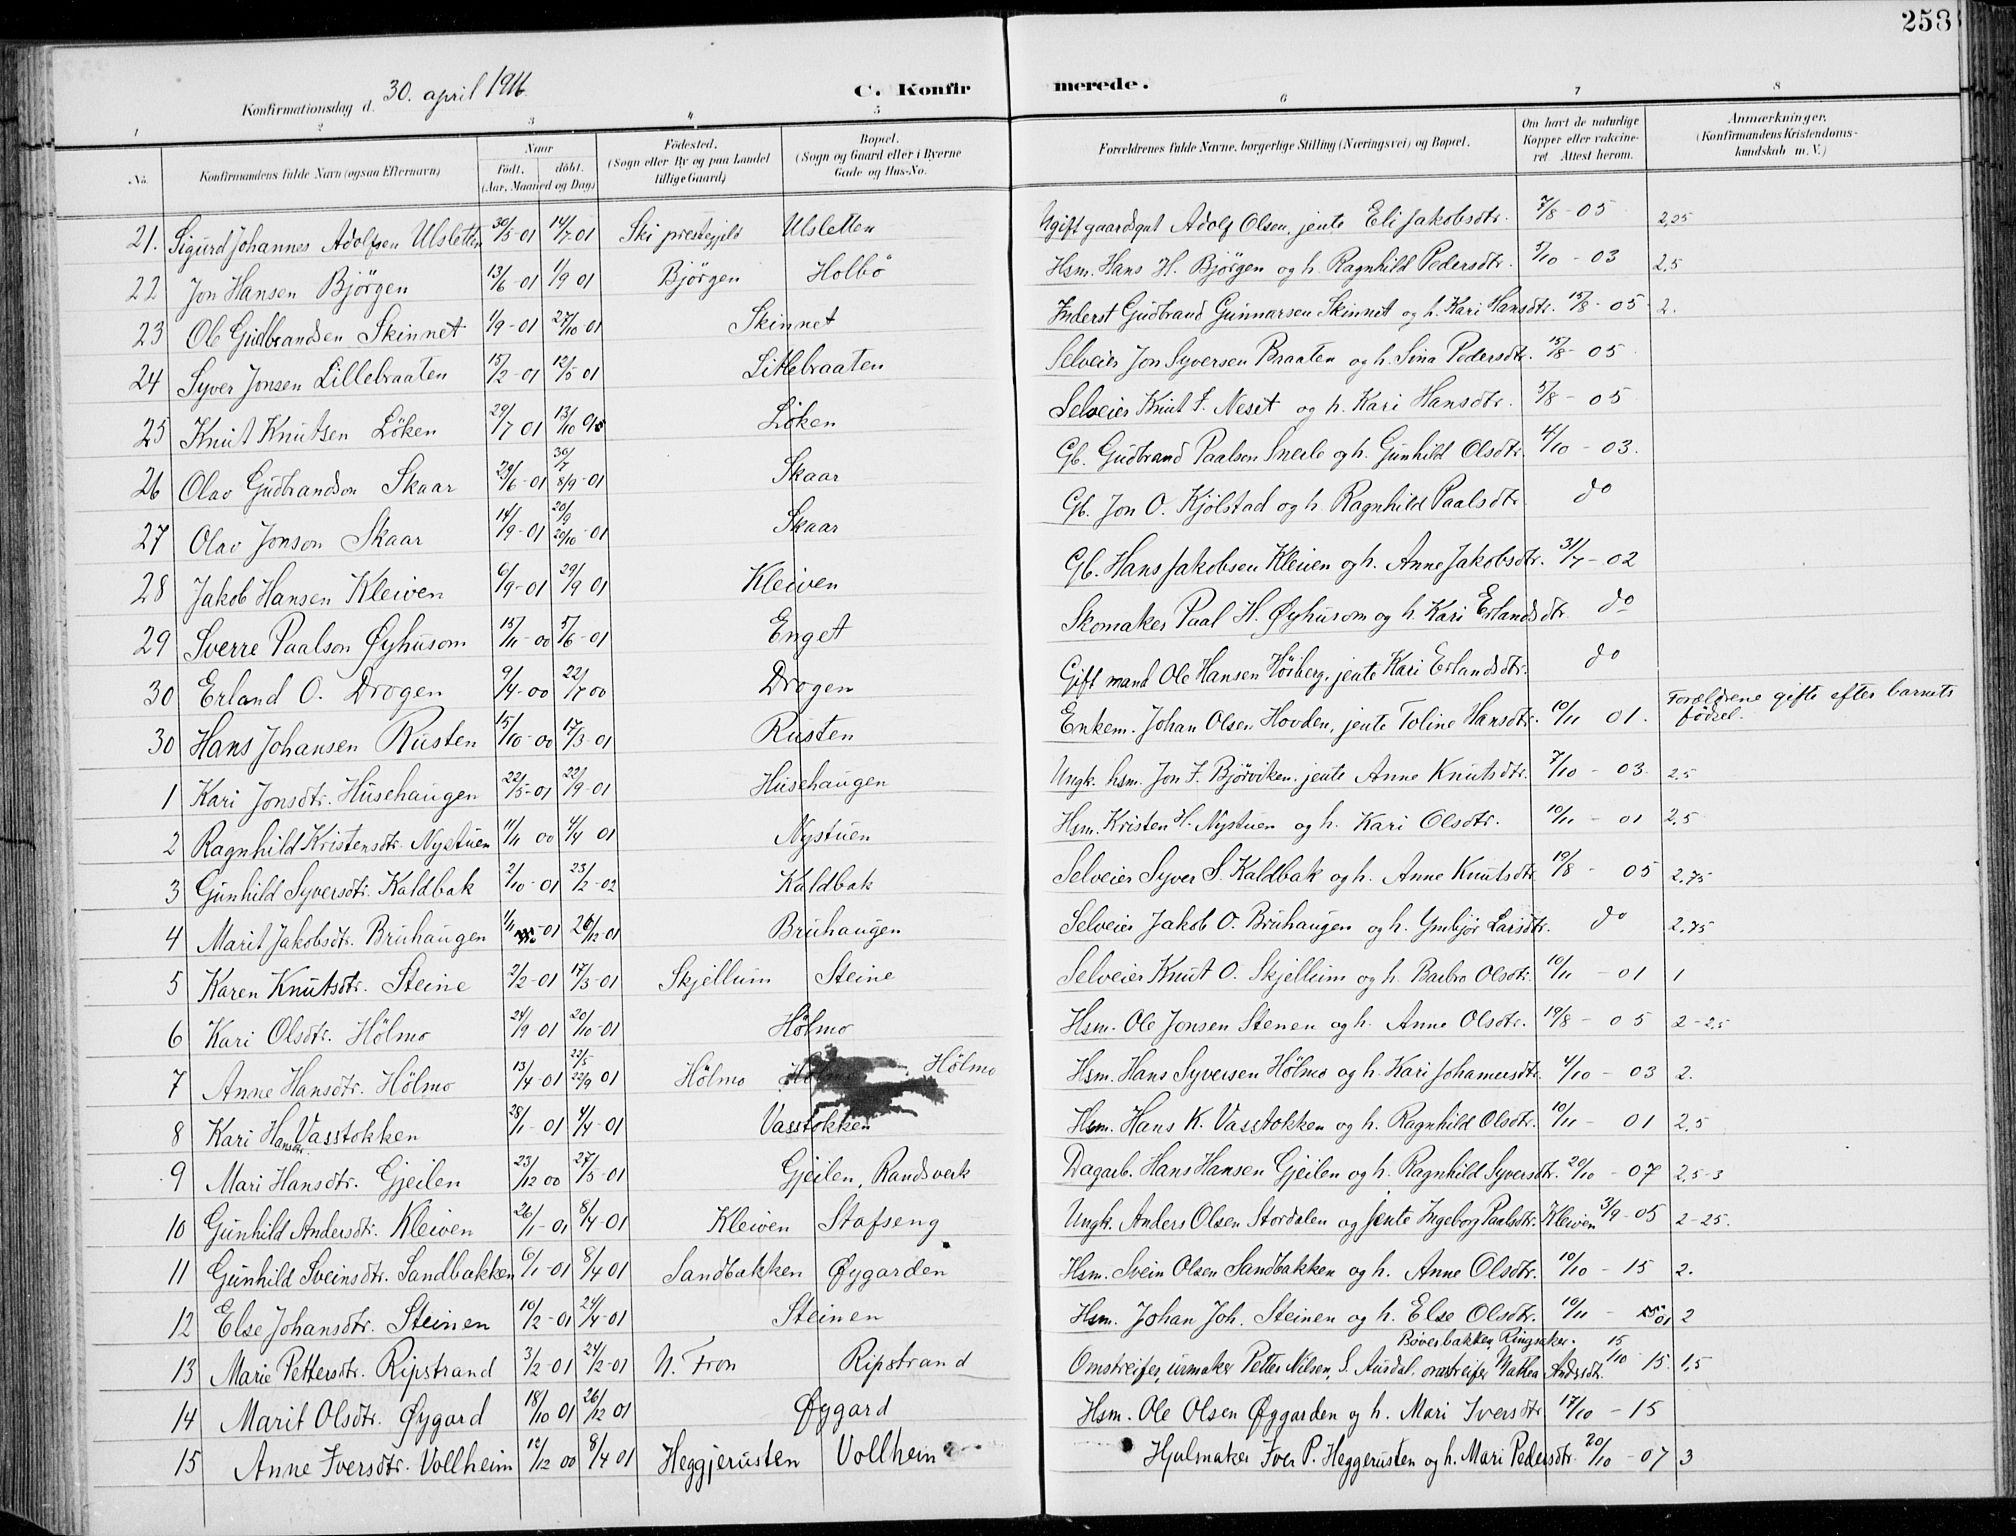 258
Konfirmationsdag d. 30. april 1916
C. Konfirmerede.
1 2 3 4 5 6 7 8
No. Konfirmandens fulde Navn (ogsaa Efternavn) Naar født. døbt. (Aar, Maaned og Dag) Fødested. (Sogn eller By og paa Landet tillige Gaard) Bopæl. (Sogn og Gaard eller i Byerne Gade og Hus-No. Forældrenes fulde Navne, borgerlige Stilling (Næringsvei) og Bopæl. Om havt de naturlige Kopper eller vakcineret. Attest herom. Anmærkninger. (Konfirmandens Kristendomskundskab m. V.)
21. Sigurd Johannes Adolfsen Ulsletten 30/5-01 14/7-01 Ski prestegjeld Ulsletten Ugift gaardsgut Adolf Olsen, jente Eli Jakobsdtr. 7/8-05 2,25
22 Jon Hansen Bjørgen 13/6-01 1/9 01 Bjørgen Holbø Hsm. Hans H. Bjørgen og h. Ragnhild Pedersdtr. 5/10-03 2,5
23 Ole Gudbrandsen Skinnet 1/9-01 27/10-01 Skinnet Inderst Gudbrand Gunnarsen Skinnet og h. Kari Hansdtr. 15/8-05 2.
24 Syver Jonsen Lillebraaten 15/2-01 12/5-01 Litlebraaten Selveier Jon Syversen Braaten og h. Sina Pedersdtr. 15/8-05
25 Knut Knutsen Løken 29/7 01 13/10 Løken Selveier Knut I. Neset og h. Kari Hansdtr. 5/8-05
26 Olav Gudbrandson Skaar 29/6-01 30/7 8/9-01 Skaar Gb. Gudbrand Paalsen Snerle og h. Gunhild Olsdtr 4/10-03.
27 Olav Jonson Skaar 14/9-01 20/9 20/10-01 Skaar Gb. Jon O. Kjølstad og h. Ragnhild Paalsdtr do
28 Jakob Hansen Kleiven 6/9-01 29/9 01 Kleiven Gb. Hans Jakobsen Kleiven og h. Anne Jakobsdtr. 31/7-02
29 Sverre Paalson Øyhusom 15/11-00 5/6-01 Enget Skomaker Paal H. Øyhusom og h. Kari Erlandsdtr do
30 Erland O. Drogen 9/4-00 22/7 00 Drogen Gift mand Ole Hansen Høiberg, jente Kari Erlandsdtr. do
30 Hans Johansen Rusten 15/10-00 17/3-01 Rusten Enkem. Johan Olsen Hovden, jente Toline Hansdtr. 10/11 01. Forældrene gifte efter barnets fødsel.
1 Kari Jonsdtr. Husehaugen 22/5-01 22/9-01 Husehaugen Ungk. hsm. Jon I. Bjørviken, jente Anne Knutsdtr. 7/10-03 2,5
2 Ragnhild Kristensdtr. Nystuen 11/11 00 4/4 01 Nystuen Hsm. Kristen H. Nystuen og h. Kari Olsdtr. 10/11-01 2.5
3 Gunhild Syversdtr. Kaldbak 2/10-01 23/2-02 Kaldbak Selveier Syver S. Kaldbak og h. Anne Knutsdtr 19/8-05 2,75
4 Marit Jakobsdtr. Bruhaugen 1/11-01 26/12-01 Bruhaugen Selveier Jakob O. Bruhaugen og h. Ymbjør Larsdtr. do 2,75
5 Karen Knutsdtr. Steine 2/2-01 17/3-01 Skjellum Steine Selveier Knut O. Skjellum og h. Barbro Olsdtr. 10/11-01 1
6 Kari Olsdtr. Hølmo 24/9 01 20/10-01 Hølmo Hsm. Ole Jonsen Stenen og h. Anne Olsdtr. 19/8-05 2-2,5
7 Anne Hansdtr. Hølmo 13/4-01 22/5 22/9 01 Hølmo Hølmo Hsm. Hans Syversen Hølmo og h. Kari Johannesdtr. 4/10-03 2.
8 Kari Hansdtr. Vasstokken 28/1-01 4/4-01 Vasstokken Hsm. Hans K. Vasstokken og h. Ragnhild Olsdtr. 10/11-01 2,5
9 Mari Hansdtr. Gjeilen 23/12 00 27/5-01 Gjeilen, Randsverk Dagarb. Hans Hansen Gjeilen og h. Ragnhild Syversdtr. 20/10-07 2,5-3
10 Gunhild Andersdtr. Kleiven 26/1-01 8/4-01 Kleiven Stafseng Ungk. Anders Olsen Stordalen og jente Ingeborg Paalsdtr. Kleiven 3/9-05 2-25.
11 Gunhild Sveinsdtr. Sandbakken 6/1-01 8/4 01 Sandbakken Øygarden Hsm. Svein Olsen Sandbakken og h. Anne Olsdtr. 10/10-15 2.
12 Else Johansdtr. Steinen 10/2-01 24/4-01 Steinen Hsm. Johan Joh. Steinen og h. Else Olsdtr. 10/11-01 2
13 Marie Pettersdtr. Ripstrand 3/2-01 24/2-01 N. Fron Ripstrand Omstreifer, urmaker Petter Nilsen, S. Aurdal, omstreifer Mathea Andersdtr. Bøverbakken, Ringsaker. 15/10-15. 1,5
14 Marit Olsdtr. Øygard 18/10 01 26/12 01 Øygard Hsm. Ole Olsen Øygarden og h. Mari Iversdtr 17/10-15
15 Anne Iversdtr. Vollheim 12/12 00 8/4 01 Heggjerusten Vollheim Hjulmaker Iver P. Heggerusten og h. Mari Pedersdtr. 20/10-07 3